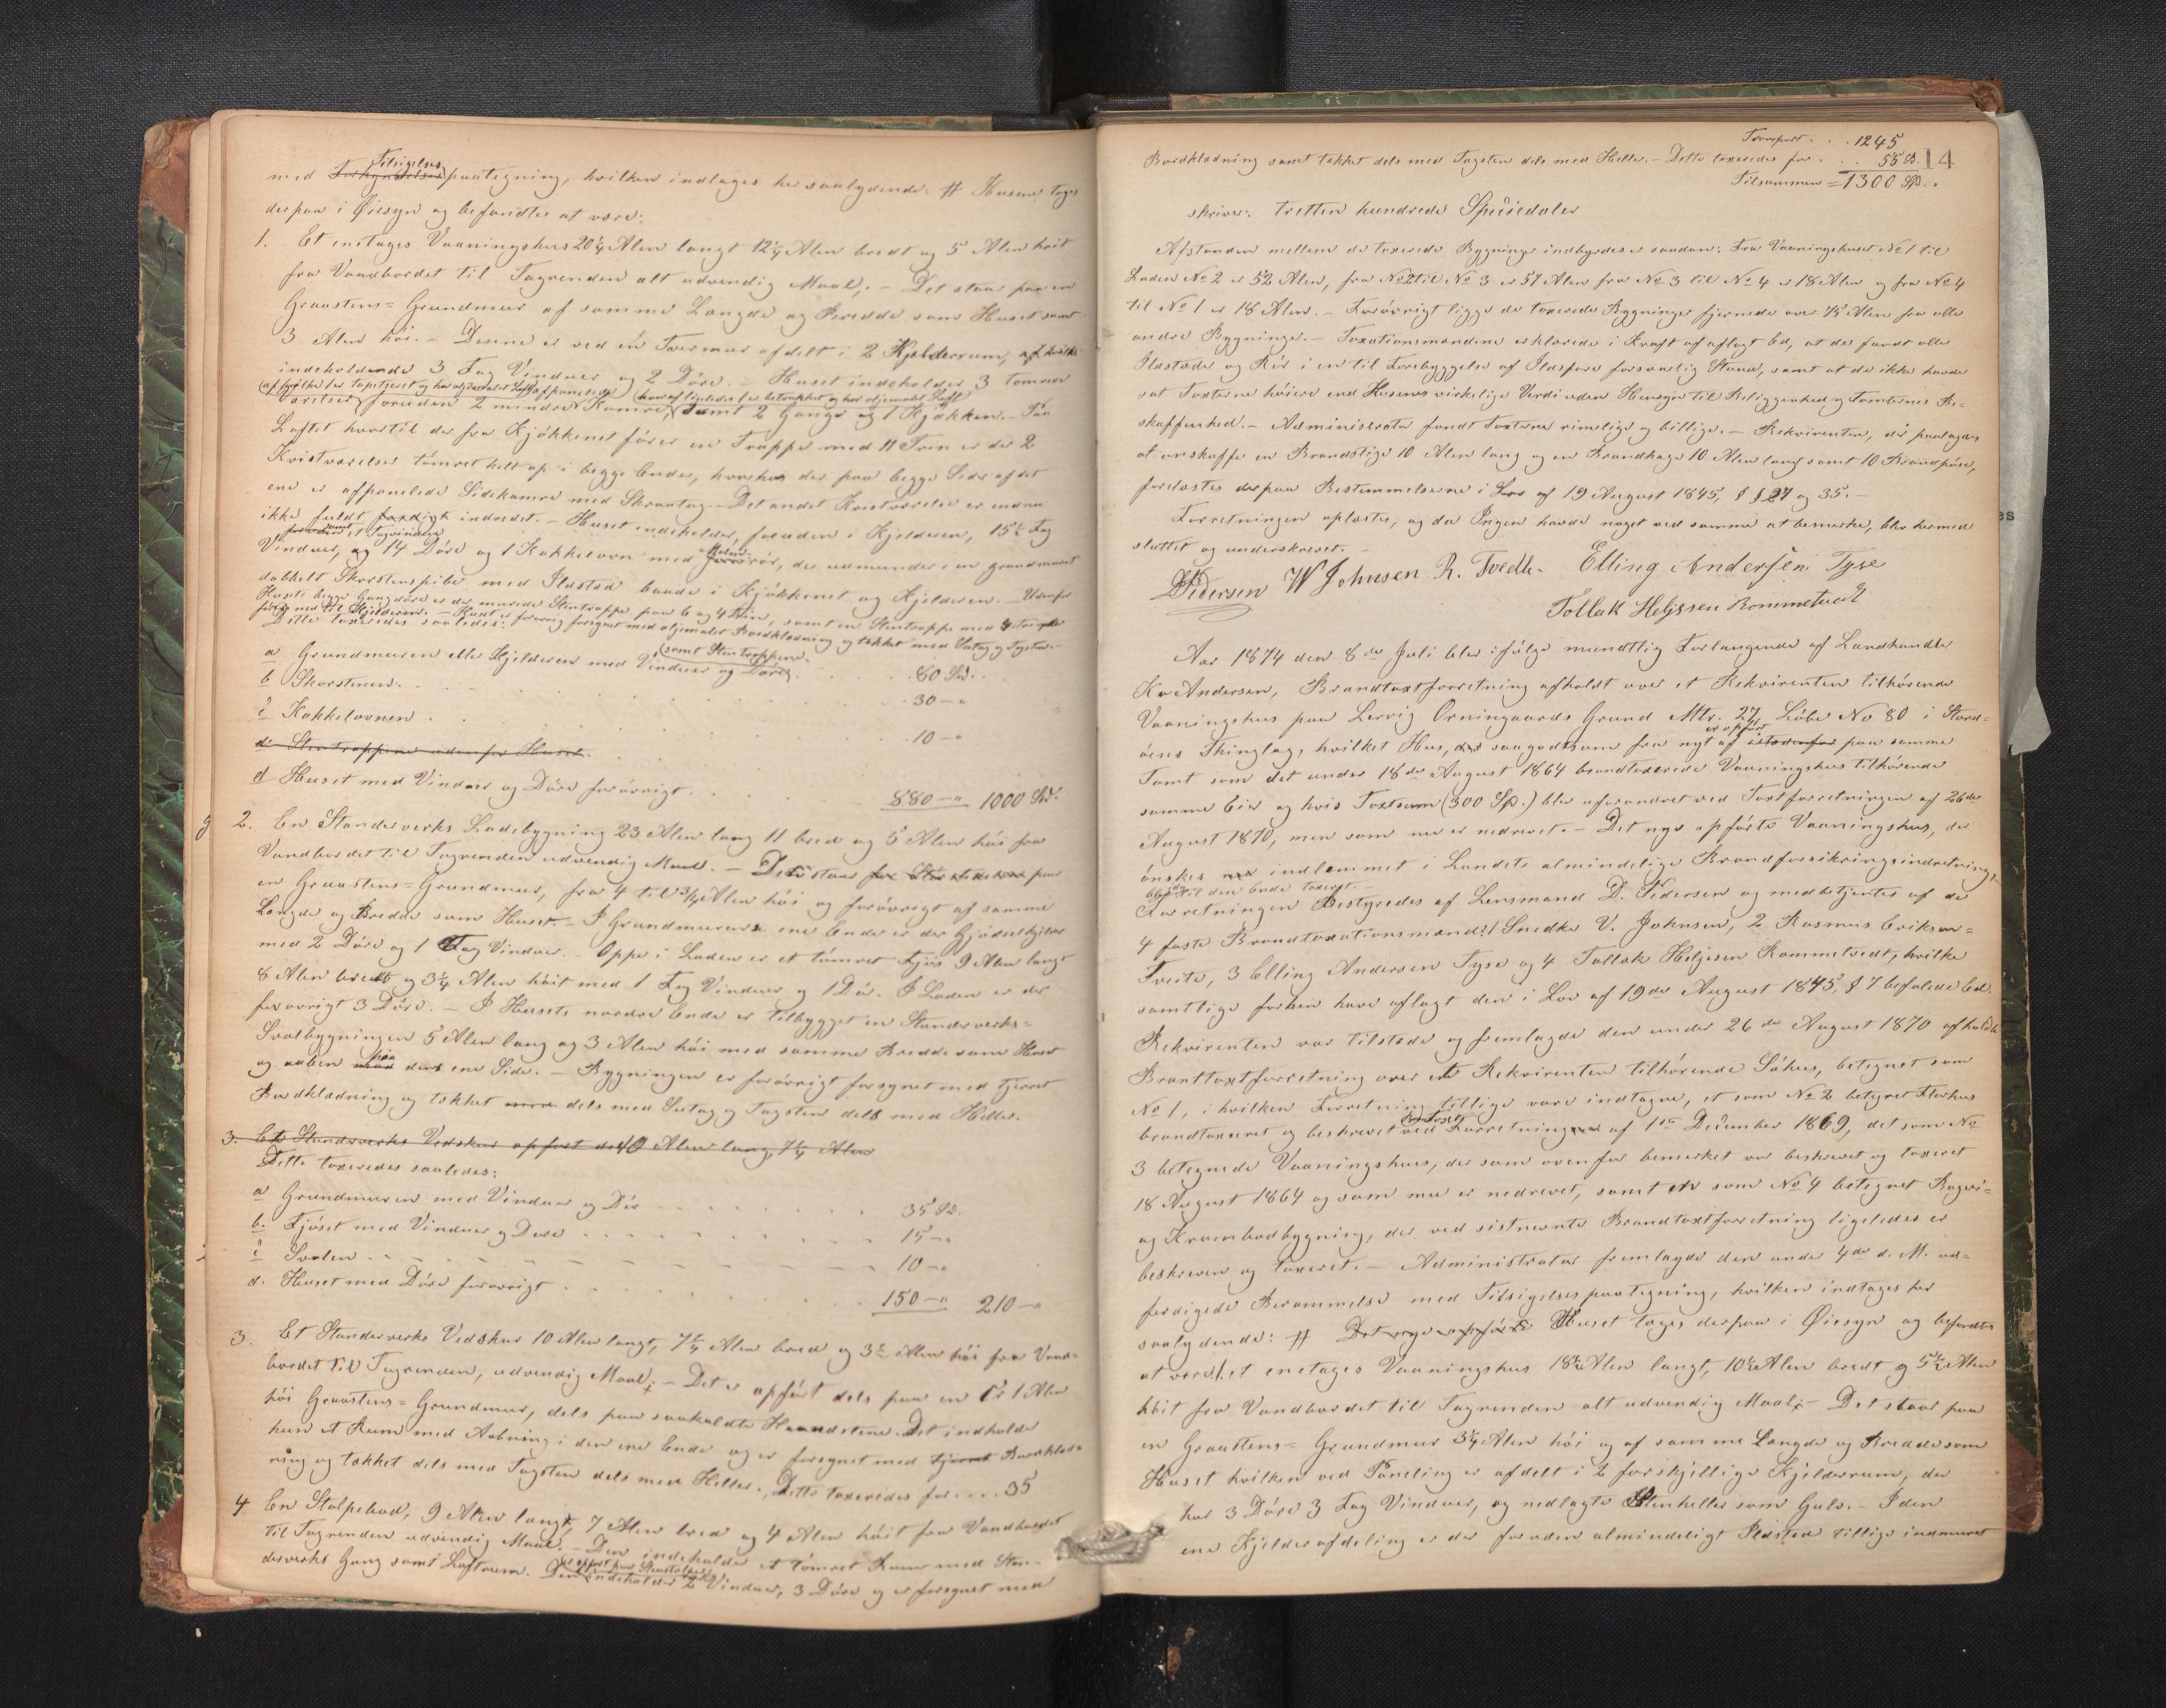 Tilsigelses
med Forkyndelses paategning, hvilken indtages her saalydende: # Husene toges
derpaa i Öiesyn og befandtes at være:
1. Et enetages Vaaningshus 20¼ Alen langt 12¼ Alen bredt og 5 Alen höit
fra Vandbordet til Tagrenden alt udvendig Maal; – Det staar paa en
Graastens= Grundmur af samme Længde og Bredde som Huset samt
3 Alen höi. – Denne er ved en Tvermur afdelt i 2 Kjelderrum, af hvilke
indeholdende 3 Fag Vinduer og 2 Döre. – Huset indeholder 3 tömrede
(af hvilke 1 er tapetseret og har oljemalet Loft) afpanelede (hvoraf ligeledes 1 er betrækket og har oljemalet Loft)
værelser foruden 2 mindre Kamre, samt 2 Gange og 1 Kjökken. – Paa
Loftet hvortil der fra Kjökkenet förer en Trappe med 11 Trin er der 2
Kvistværelser tömret helt op i begge Ender, hvorhos der paa begge Sider af det
ene er afpanelede Sidekamre med Skraatag. – Det andet Kvistværelse er endnu
ikke fuldt færdigt indredet. – Huset indeholder, foruden i Kjelderen, 15½ Fag
samt et Tagvindue
Vinduer, og 14 Döre og 1 Kakkelovn med rör, der udmunder i en grundmuret
dobbelt Skorstenspibe med Ildsted baade i Kjökkenet og Kjelderen. – Udenfor
Husets begge Gangdöre er der murede Stentrapper paa 6 og 4 Trin, samt en Stentrappe med 4 Trin
förer ned til Kjelderen. – Huset er forövrig forsynet med oljemalet Bordklædning og tækket med Sutag og Tagsten. –
Dette taxeredes saaledes:
(samt Stentrappen.
a Grundmuren eller Kjelderen med Vinduer og Döre) . . . 80 Spd. .
b Skorstenen . . . 30 – "
c Kakkelovnen . . . 10 – "
d Stentrappene udenfor Huset.
d Huset med Vinduer og Döre forövrigt . . . 880 – " 1000 Spd.
2. En Standerverks Ladebygning 23 Alen lang 11 bred og 5 Alen höi fra
Vandbordet til Tagrenden udvendig Maal. – Dette staar paa
en Graastens= Grundmur, fra 4 til ¾ Alen höi og forövrigt af samme
Længde og Bredde som Huset. – I Grundmurens ene Ende er der Gjödselkjelder
med 2 Döre og 1 Fag Vinduer. – Oppe i Laden er et tömret Fjös 9 Alen langt
8 Alen bredt og 3¼ Alen höit med 1 Fag Vinduer og 1 Dör. I Laden er der
forövrigt 3 Döre. – I Husets nordre Ende er tilbygget en Standerverks=
Svalbygningen 5 Alen lang og 3 Alen höi med samme Bredde som Huset
og aaben paa dens ene Side. – Bygningen er forövrigt forsynet med tjæret
Bordklædning og tækket med dels med Sutag og Tagsten dels med Heller.
3. Et Standerverks Vedskur opfört 10 Alen lang, 7¼ Alen
Dette taxeredes saaledes:
a Grundmuren med Vinduer og Dör . . . 35 Sp.
b. Fjöset med Vinduer og Döre . . . 15 – "
c Svalen . . . 10 – "
d. Huset med Döre forövrigt . . . 150 – " 210 – "
3. Et Standerverks Vedskur 10 Alen langt, 7¼ Alen bred og 3½ Alen höi fra Vand=
bordet til Tagrenden, udvendig Maal; – Det er opfört dels paa en 1 Alen
höi Graastens= Grundmur, dels paa saakaldte Haandstene. Det indeholder
kun et Rum med Aabning i den ene Ende og er forsynet med tjæret Bordklæd=
ning og tækket dels med Tagsten dels med Heller. Dette taxeredes for . . . 35
4 En Stolpebod, 9 Alen langt, 7 Alen bred og 4 Alen höit fra Vandbordet
til Tagrenden udvendig Maal. – Den indeholder et tömret Rum med Stan=
er opfört paa Stenstolper
derverks Gang samt Loftrum. Den indeholder 2 Vinduer, 3 Döre og er forsynet med
Transport . . . 1245
Bordklædning samt tækket dels med Tagsten dels med Heller. – Dette taxeredes for . . . 55 Sp. 14
Tilsammen = 1300 Spd. .
skriver: tretten hundrede Speciedaler
Afstanden mellem de taxerede Bygninger indbyrdes er saadan: Fra Vaaningshuset No 1 til
Laden No 2 er 52 Alen, fra No 2 til No 3 er 57 Alen fra No 3 til No 4 er 18 Alen og fra No 4
til No 1 er 18 Alen. – Forövrigt ligger de taxerede Bygninger fjernede over 75 Alen fra alle
andre Bygninger. – Taxationsmændene erklærede i Kraft af aflagt Ed, at de fandt alle
Ildsteder og Rör i en til Forebyggelse af Ildsfare forsvarlig Stand, samt at de ikke havde
sat Taxterne höiere end Husenes virkelige Verdi uden Hensyn til Beliggenhed og Tomternes Be=
skaffenhed. – Administrator fandt Taxterne rimelige og billige. – Rekvirenten, der paalagdes
at anskaffe en Brandstige 10 Alen lang og en Brandhage 10 Alen lang samt 10 Brandpöse,
forelæstes derpaa Bestemmelserne i Lov af 19 August 1845, § § 27 og 35. –
Forretningen oplæstes, og da Ingen havde noget ved samme at bemærke, blev hermed
sluttet og underskrevet. –
DPedersen W Johnsen R. Tvedte. Elling Andersen Tyse
Tollak Heljesen Rommetvedt
Aar 1874 den 8de Juli blev ifölge mundtlig Forlangende af Landhandler
Andersen, Brandtaxtforretning afholdt over et Rekvirenten tilhörende
Vaaningshus paa Lervig Orningaards Grund Mtr. 27 Löbe No 80 i Stord=
öens Thinglag, hvilket Hus, der saagodtsom fra nyt af er opfört paa samme
Tomt som det under 18de August 1864 brandtaxerede Vaaningshus tilhörende
samme Eier og hvis Taxtsum (300 Sp.) blev uforandret ved Taxtforretningen af 26de
August 1870, men som nu er nedrevet. – Det nye opförte Vaaningshus, der
önskes indlemmet i Landets almindelige Brandforsikringsindretning,
blev til den Ende taxeret. –
Forretningen bestyredes af Lensmand D. Pedersen og medbetjentes af de
4 faste Brandtaxationsmænd: 1 Snedker V. Johnsen, 2 Rasmus Eriksen=
Tveite, 3 Elling Andersen Tyse og 4 Tollak Heljesen Rommetvedt, hvilke
samtlige forhen have aflagt den i Lov af 19de August 1845, § 7 befalede Ed.
Rekvirenten var tilstede og fremlagde den under 26de August 1870 afholdte
Branttaxtforretning over et Rekvirenten tilhörende Söhus, betegnet som
No 1, i hvilken Forretning tillige vare indtagne, et som No 2 betegnet Florhus
brandtaxeret og beskrevet ved Forretning af 1ste December 1869, det som No
3 betegnede Vaaningshus, der som ovenfor bemærket var beskrevet og taxeret
18 August 1864 og som nu er nedrevet, samt et som No 4 betegnet Bageri=
og Krambodbygning, der ved sistnevnte Brandtaxtforretning ligeledes er
beskreven og taxeret. – Administrator fremlagde den under 4de d. M. ud=
færdigede Berammelse med Tilsigelsespaategning, hvilken indtages her
saalydende: # Det nye opförte Huset toges derpaa i Öiesyn og befandtes
at være: et enetages Vaaningshus 18½ Alen langt, 10½ Alen bredt og 5½ Alen
höit fra Vandbordet til Tagrenden alt udvendig Maal; – Det staar paa
en Graastens= Grundmur 3¼ Alen höi og af samme Længde og Bredde som
Huset hvilken ved Paneling er afdelt i 2 forskjellige Kjelderrum, der
har 3 Döre 3 Fag Vinduer, og nedlagte Stenheller som Gulv. – I den
ene Kjelderafdeling er der foruden almindeligt Ildsted tillige indmuret